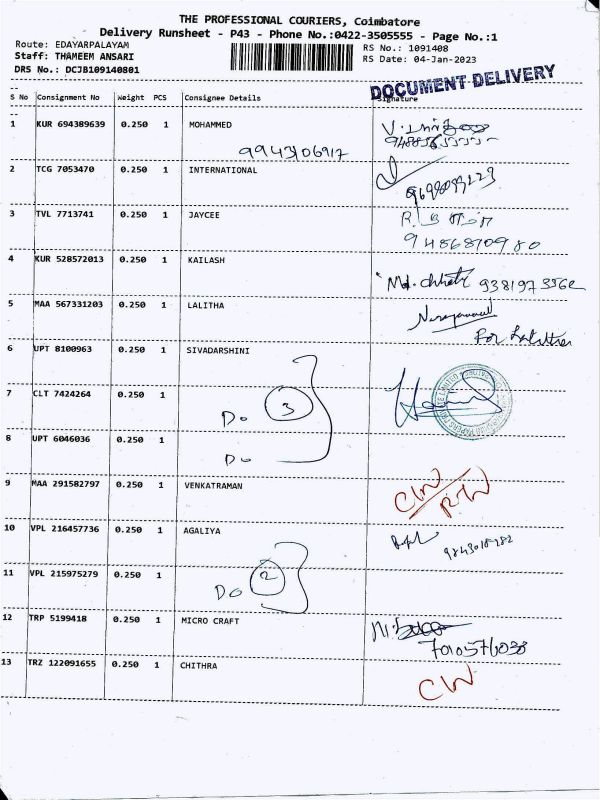 THE PROFESSIONAL COURIERS, Coimbatore
Delivery Runsheet - P43 - Phone No.:0422-3505555 - Page No.:1
Route: EDAYARPALAYAM
Staff: THAMEEM ANSARI
DRS No.: DCJB109140801
RS No.: 1091408
RS Date: 04-Jan-2023
DOCUMENT DELIVERY
S No Consignment No Weight PCS Consignee Details Signature
1 KUR 694389639 0.250 1 MOHAMMED
9943106917
2 TCG 7053470 0.250 1 INTERNATIONAL
3 TVL 7713741 0.250 1 JAYCEE
9486810980
4 KUR 528572013 0.250 1 KAILASH
Md. 9381973562
5 MAA 567331203 0.250 1 LALITHA
For Lalitha
6 UPT 8100963 0.250 1 SIVADARSHINI
7 CLT 7424264 0.250 1
Do 3
8 UPT 6046036 0.250 1
Do
9 MAA 291582797 0.250 1 VENKATRAMAN
CW
RTW
10 VPL 216457736 0.250 1 AGALIYA
11 VPL 215975279 0.250 1
Do 2
12 TRP 5199418 0.250 1 MICRO CRAFT
13 TRZ 122091655 0.250 1 CHITHRA
CW